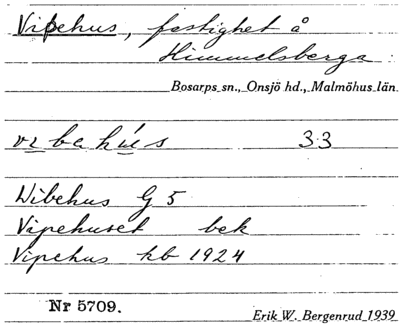 Vipehus, fastighet å
Himmelsberga
Bosarps sn., Onsjö hd., Malmöhus län.
vibahús 33
Wibehus G 5
Vipehuset bek
Vipehus kb 1924
Nr 5709.
Erik W. Bergenrud 1939